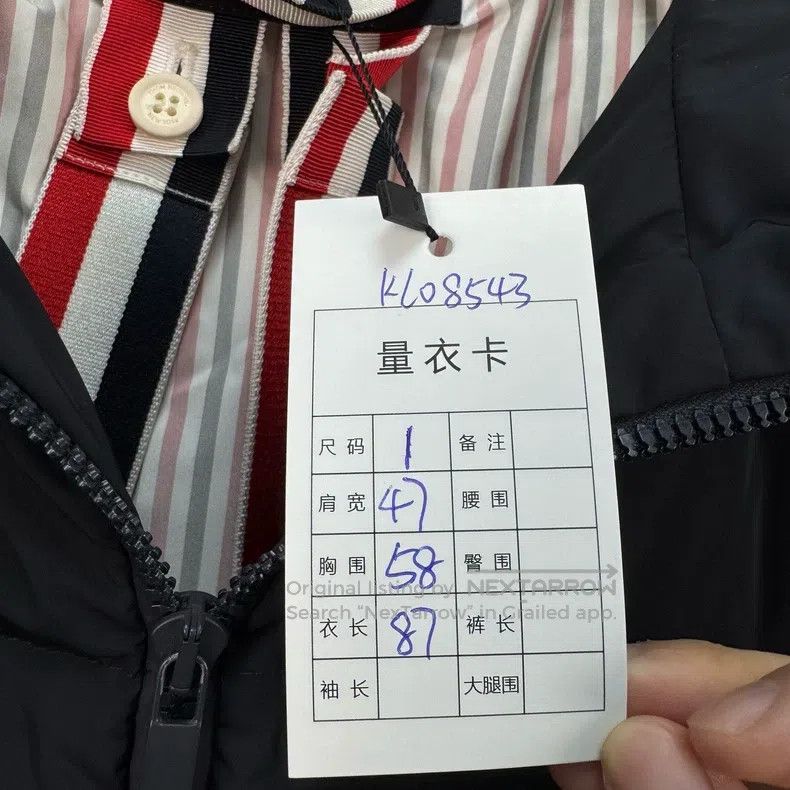 KL08543
量衣卡
尺码 1 备注
肩宽 47 腰围
胸围 58 臀围
Original listing by NEXTARROW
Search "NexTarrow" in Grailed app.
衣长 87 裤长
袖长 大腿围